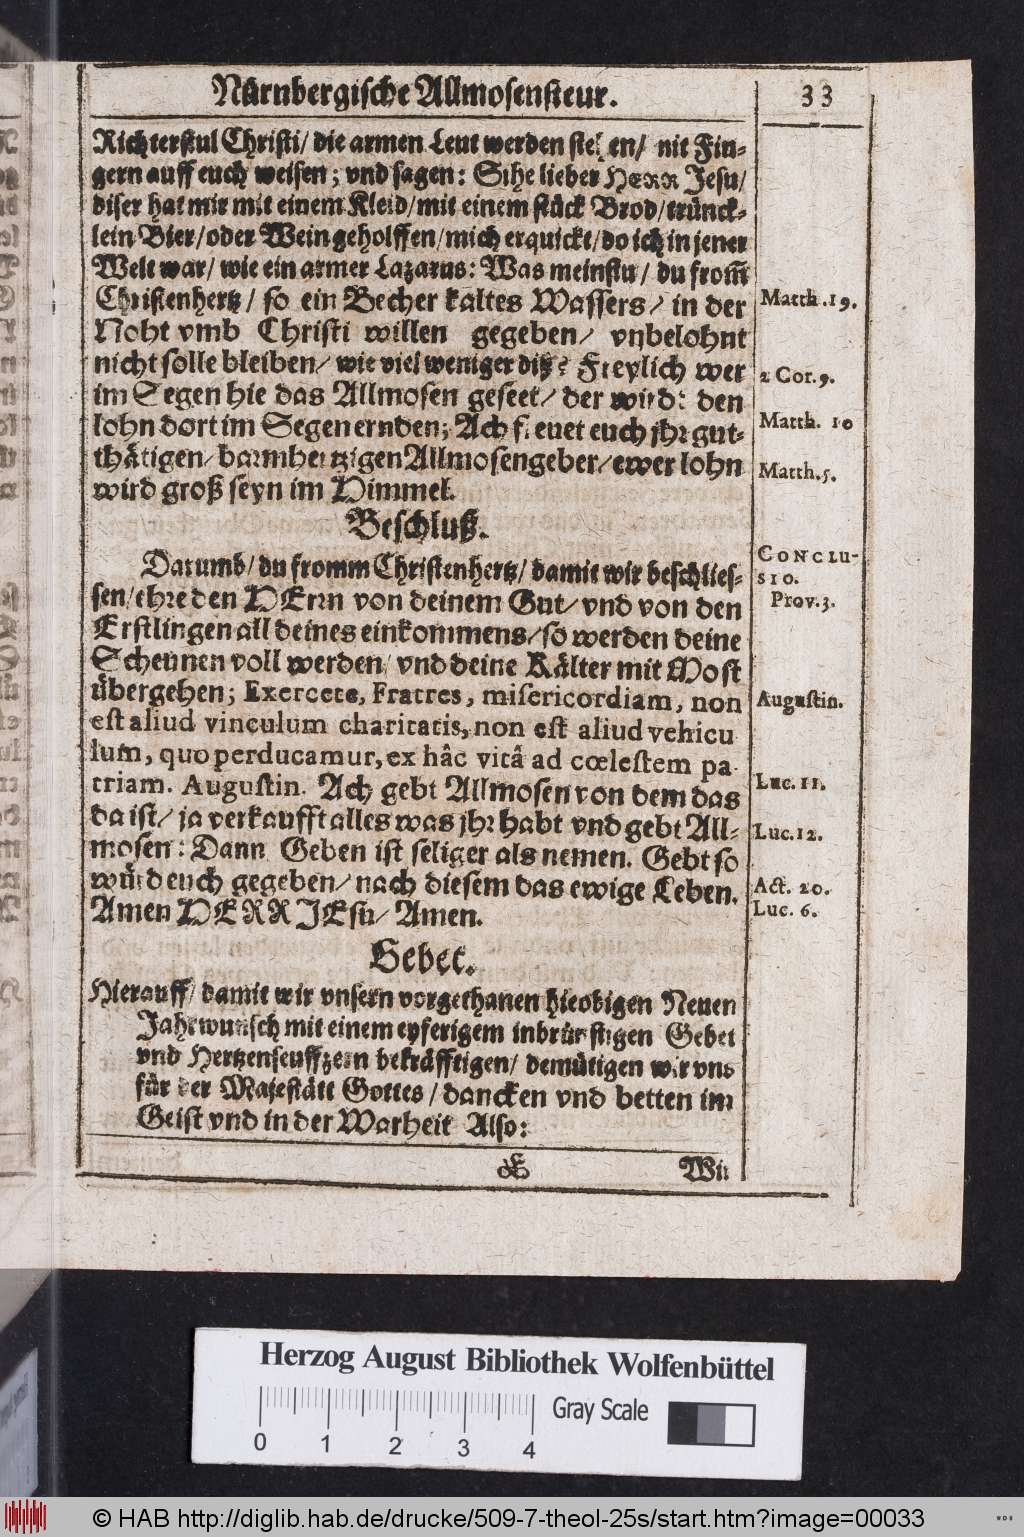 Nürnbergische Allmosensteur. 33
Richterstul Christi/ die armen Leut werden stehen/ mit Fin-
gern auff euch weisen; vnd sagen: Sihe lieber HERR Jesu/
diser hat mir mit einem Kleid/ mit einem stück Brod/ trünck-
lein Bier/ oder Wein geholffen/ mich erquickt/ do ich in jener
Welt war/ wie ein armer Lazarus: Was meinstu/ du from̃
Christenhertz/ so ein Becher kaltes Wassers/ in der
Matth. 19.
Noht vmb Christi willen gegeben/ vnbelohnt
nicht solle bleiben/ wie viel weniger diß? Freylich wer
2 Cor. 9.
im Segen hie das Allmosen geseet/ der wird: den
lohn dort im Segen ernden; Ach freuet euch jhr gut-
Matth. 10
thätigen/ barmhertzigen Allmosengeber/ ewer lohn
Matth. 5.
wird groß seyn im Himmel.
Beschluß.
Darumb/ du fromm Christenhertz/ damit wir beschlies-
CONCLU-
SIO.
sen/ ehre den HErrn von deinem Gut/ vnd von den
Prov. 3.
Erstlingen all deines einkommens/ so werden deine
Scheunen voll werden/ vnd deine Kälter mit Most
übergehen; Exercete, Fratres, misericordiam, non
Augustin.
est aliud vinculum charitatis, non est aliud vehicu
lum, quo perducamur, ex hâc vitâ ad cœlestem pa-
triam. Augustin. Ach gebt Allmosen von dem das
Luc. 11.
da ist/ ja verkaufft alles was jhr habt vnd gebt All-
Luc. 12.
mosen: Dann Geben ist seliger als nemen. Gebt so
würd euch gegeben/ nach diesem das ewige Leben.
Act. 20.
Amen HERR JEsu/ Amen.
Luc. 6.
Gebet.
Hierauff/ damit wir vnsern vorgethanen hieobigen Neuen
Jahrwunsch mit einem eyferigem inbrünstigen Gebet
vnd Hertzenseuffzern bekräfftigen/ demütigen wir vns
für der Majestätt Gottes/ dancken vnd betten im
Geist vnd in der Warheit Also:
E Wir
Herzog August Bibliothek Wolfenbüttel
Gray Scale
0 1 2 3 4
© HAB http://diglib.hab.de/drucke/509-7-theol-25s/start.htm?image=00033